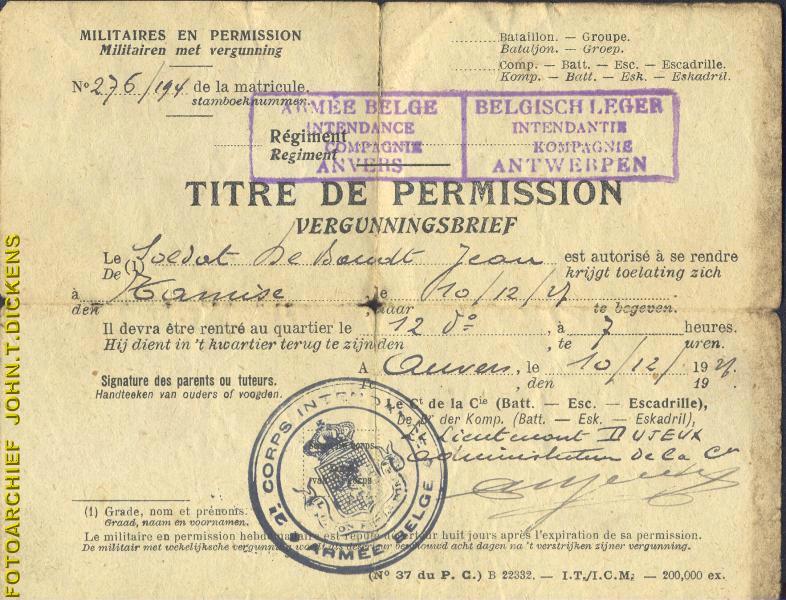 MILITAIRES EN PERMISSION
Militairen met vergunning
Bataillon. — Groupe.
Bataljon. — Groep.
Comp. — Batt. — Esc. — Escadrille.
Komp. — Batt. — Esk. — Eskadril.
No 276/194 de la matricule.
stamboeknummer.
ARMÉE BELGE
INTENDANCE
COMPAGNIE
ANVERS
BELGISCH LEGER
INTENDANTIE
KOMPAGNIE
ANTWERPEN
Régiment
Regiment
TITRE DE PERMISSION
VERGUNNINGSBRIEF
Le Soldat De Bondt Jean est autorisé à se rendre
De (1) krijgt toelating zich
à Tamise le 10/12/27
den naar te begeven.
Il devra être rentré au quartier le 12 do, à 7 heures.
Hij dient in 't kwartier terug te zijn den , te uren.
A Anvers, le 10/12/1927.
Te , den 19 .
Signature des parents ou tuteurs.
Handteeken van ouders of voogden.
Le Ct de la Cie (Batt. — Esc. — Escadrille),
De Or der Komp. (Batt. — Esk. — Eskadril),
Lieutenant DUJEUX
Administrateur de la Cie
2e CORPS INTENDANCE
ARMÉE BELGE
(1) Grade, nom et prénoms.
Graad, naam en voornamen.
Le militaire en permission hebdomadaire est réputé déserteur huit jours après l'expiration de sa permission.
De militair met wekelijksche vergunning wordt als deserteur beschouwd acht dagen na 't verstrijken zijner vergunning.
(No 37 du P. C.) B 22332. — I.T./I.C.M. — 200,000 ex.
FOTOARCHIEF JOHN.T.DICKENS